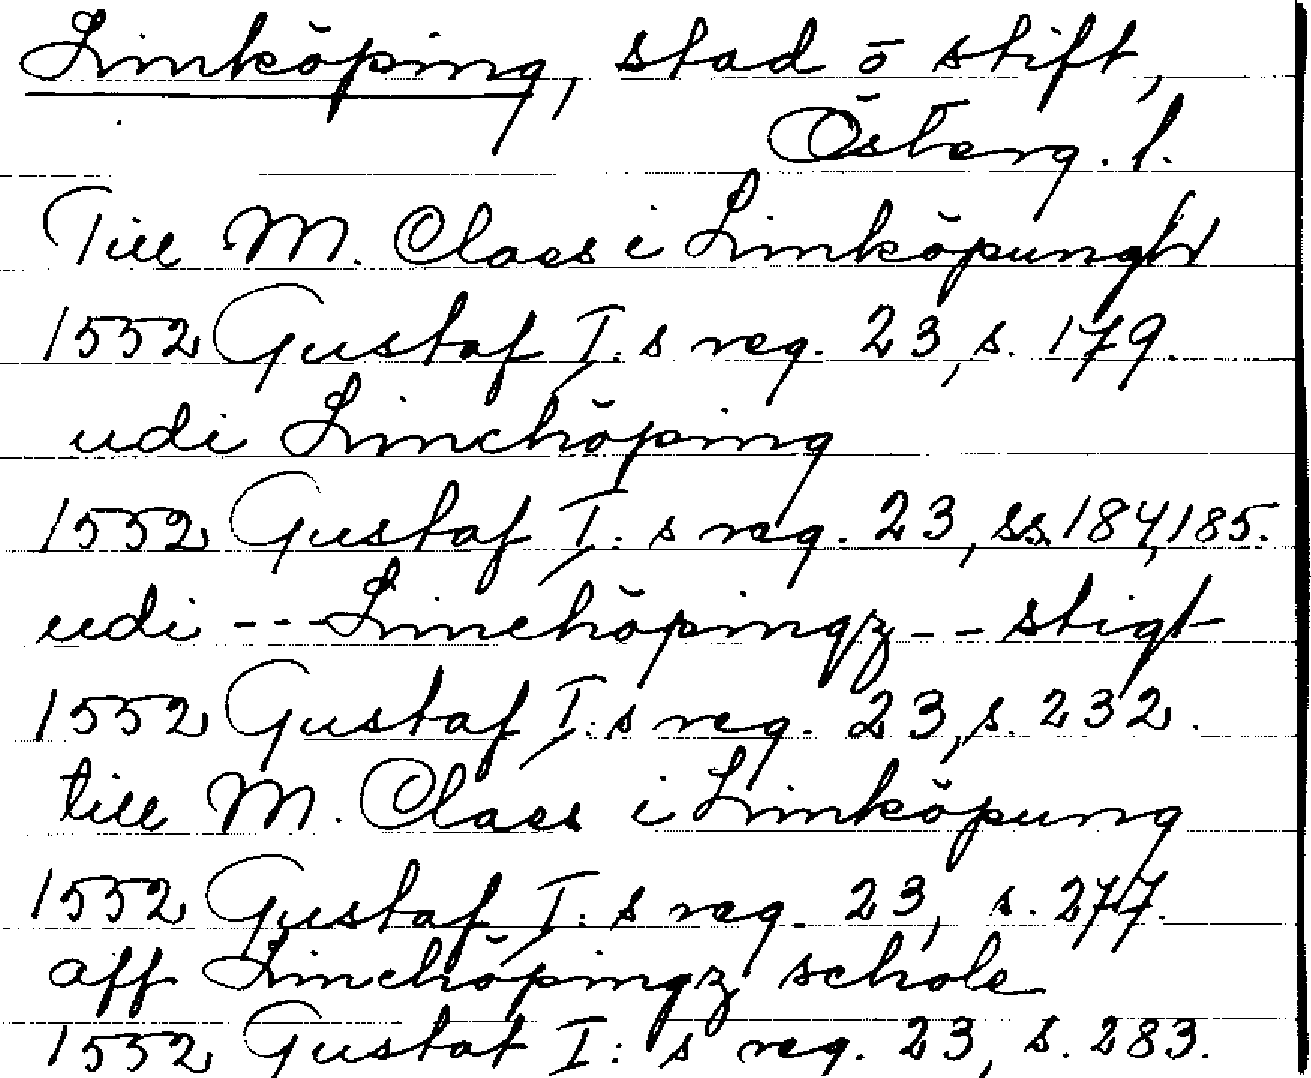 Linköping, stad ō stift,
Österg. l.
Till M. Claes i Linköpungh
1552 Gustaf I:s reg. 23, s. 179.
udi Linchöping
1552 Gustaf I:s reg. 23, ss. 184, 185.
udi --- Linchöpingz -- stigt
1552 Gustaf I:s reg. 23, s. 232.
till M. Claes i Linköpung
1552 Gustaf I:s reg. 23, s. 277.
aff Linchöpingz schole
1552 Gustaf I:s reg. 23, s. 283.